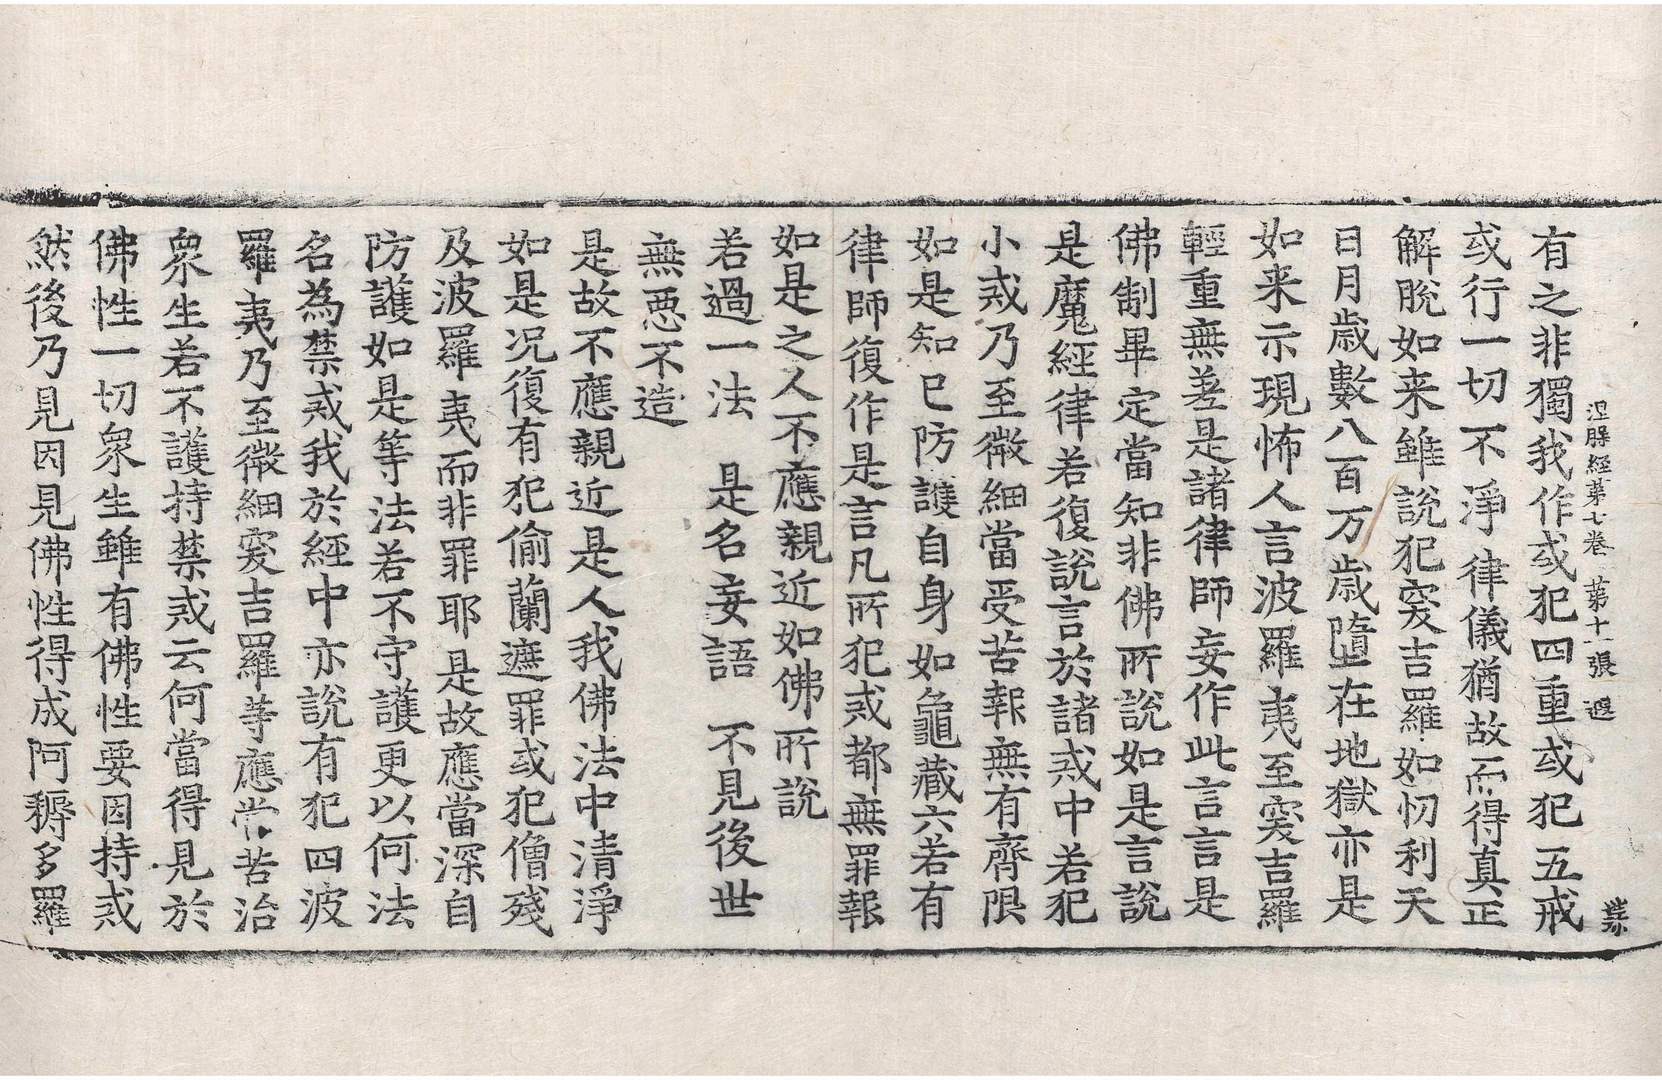 涅槃経第七卷 第十一張 遐
有之非獨我作或犯四重或犯五戒
或行一切不淨律儀猶故而得真正
解脫如来雖說犯突吉羅如忉利天
日月歲數八百万歲墮在地獄亦是
如来示現怖人言波羅夷至突吉羅
輕重無差是諸律師妄作此言言是
佛制畢定當知非佛所說如是言說
是魔經律若復說言於諸戒中若犯
小戒乃至微細當受苦報無有齊限
如是知已防護自身如龜藏六若有
律師復作是言凡所犯戒都無罪報
如是之人不應親近如佛所說
若過一法 是名妄語 不見後世
無惡不造
是故不應親近是人我佛法中清淨
如是況復有犯偷蘭遮罪或犯僧殘
及波羅夷而非罪耶是故應當深自
防護如是等法若不守護更以何法
名為禁戒我於經中亦說有犯四波
羅夷乃至微細突吉羅等應當苦治
衆生若不護持禁戒云何當得見於
佛性一切衆生雖有佛性要因持戒
然後乃見因見佛性得成阿耨多羅